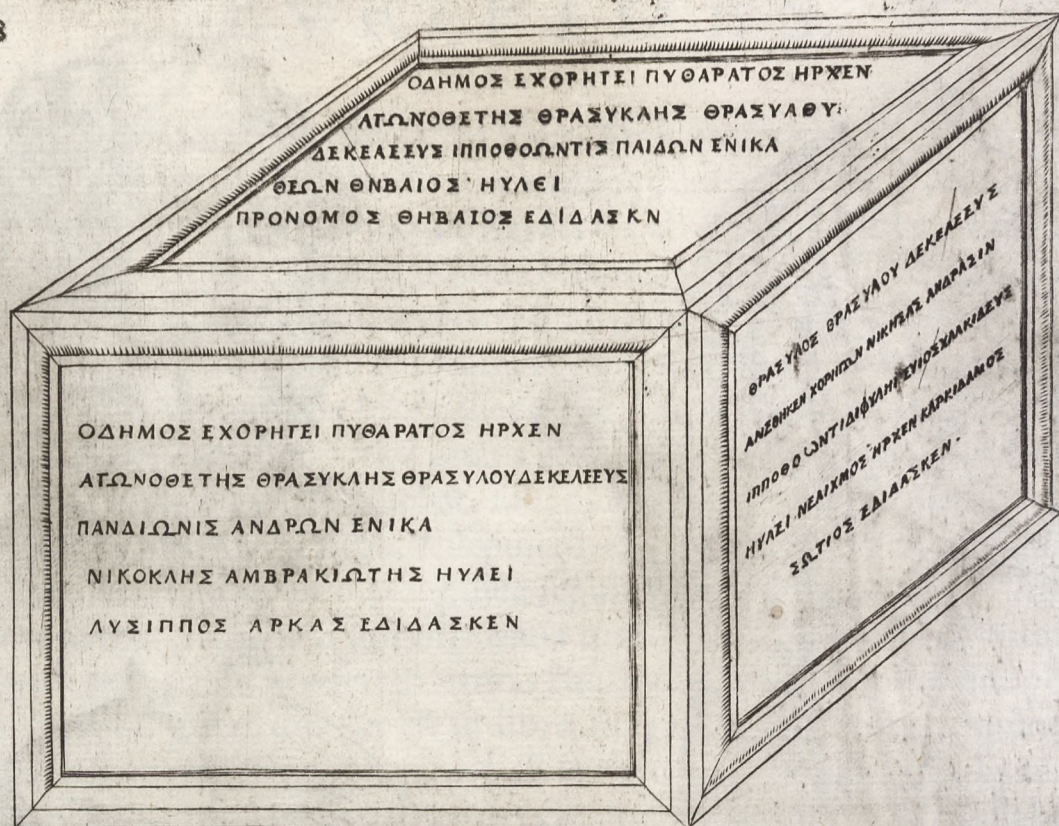 8
ΟΔΗΜΟΣ ΕΧΟΡΗΓΕΙ ΠΥΘΑΡΑΤΟΣ ΗΡΧΕΝ
ΑΓΩΝΟΘΕΤΗΣ ΘΡΑΣΥΚΛΗΣ ΘΡΑΣΥΛΘΥ
ΔΕΚΕΛΕΕΥΣ ΙΠΠΟΘΟΩΝΤΙΣ ΠΑΙΔΩΝ ΕΝΙΚΑ
ΘΕΩΝ ΘΝΒΑΙΟΣ ΗΥΛΕΙ
ΠΡΟΝΟΜΟΣ ΘΗΒΑΙΟΣ ΕΔΙΔΑΣΚΝ
ΟΔΗΜΟΣ ΕΧΟΡΗΓΕΙ ΠΥΘΑΡΑΤΟΣ ΗΡΧΕΝ
ΑΓΩΝΟΘΕΤΗΣ ΘΡΑΣΥΚΛΗΣ ΘΡΑΣΥΛΟΥ ΔΕΚΕΛΕΕΥΣ
ΠΑΝΔΙΩΝΙΣ ΑΝΔΡΩΝ ΕΝΙΚΑ
ΝΙΚΟΚΛΗΣ ΑΜΒΡΑΚΙΩΤΗΣ ΗΥΛΕΙ
ΛΥΣΙΠΠΟΣ ΑΡΚΑΣ ΕΔΙΔΑΣΚΕΝ
ΘΡΑΣΥΛΟΣ ΘΡΑΣΥΛΟΥ ΔΕΚΕΛΕΕΥΣ
ΑΝΕΘΗΚΕΝ ΧΟΡΗΓΩΝ ΝΙΚΗΣΑΣ ΑΝΔΡΑΣΙΝ
ΙΠΠΟΘΟΩΝΤΙΔΙΦΥΛΗΙ ΕΥΙΟΣΧΑΛΚΙΔΕΥΣ
ΗΥΛΕΙ ΝΕΑΙΧΜΟΣ ΗΡΧΕΝ ΚΑΡΚΙΔΑΜΟΣ
ΣΩΤΙΟΣ ΕΔΙΔΑΣΚΕΝ·